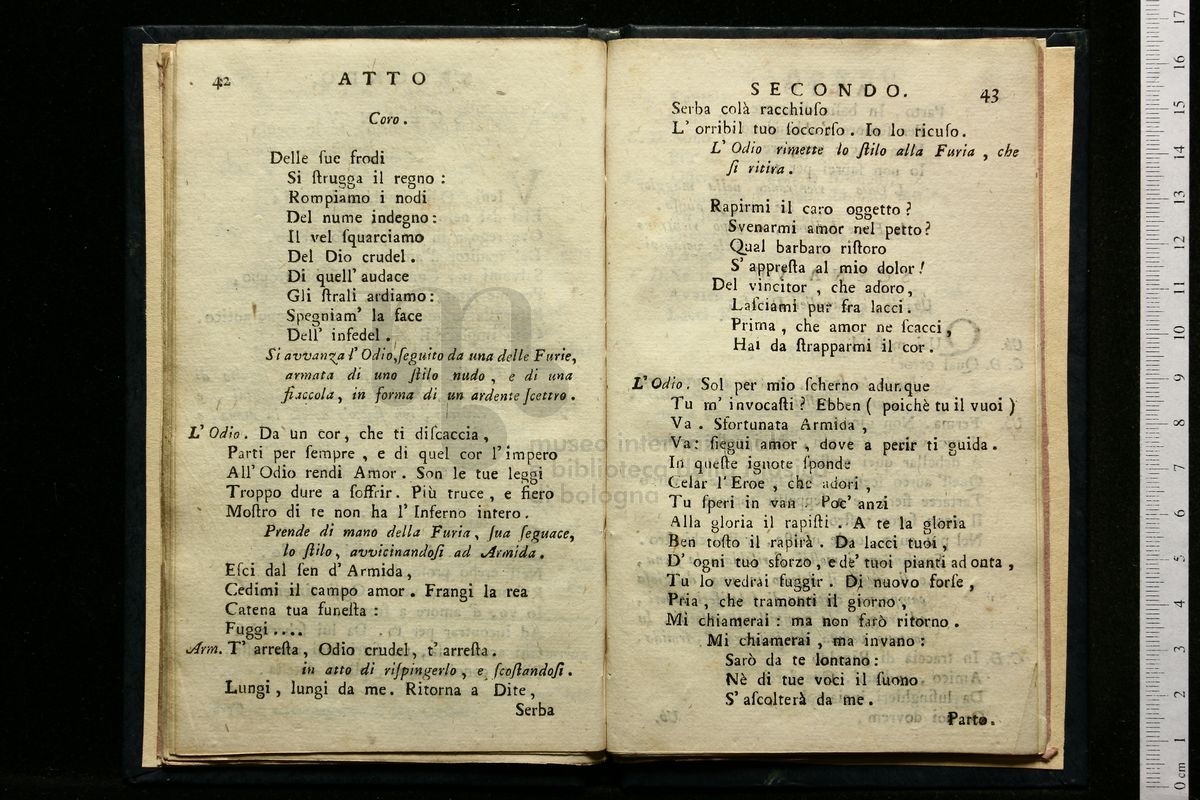 42 ATTO
Coro.
Delle ſue frodi
Si ſtrugga il regno :
Rompiamo i nodi
Del nume indegno:
Il vel ſquarciamo
Del Dio crudel.
Di quell' audace
Gli ſtrali ardiamo:
Spegniam' la face
Dell' infedel.
Si avvanza l' Odio,ſeguito da una delle Furie,
armata di uno ſtilo nudo, e di una
fiaccola, in forma di un ardente ſcettro.
L' Odio. Da un cor, che ti diſcaccia,
Parti per ſempre, e di quel cor l'impero
All' Odio rendi Amor. Son le tue leggi
Troppo dure a ſoffrir. Più truce, e fiero
Moſtro di te non ha l' Inferno intero.
Prende di mano della Furia, ſua ſeguace,
lo ſtilo, avvicinandoſi ad Armida.
Eſci dal ſen d' Armida,
Cedimi il campo amor. Frangi la rea
Catena tua funeſta :
Fuggi....
Arm. T' arreſta, Odio crudel, t' arreſta.
in atto di riſpingerlo, e ſcoſtandoſi.
Lungi, lungi da me. Ritorna a Dite,
Serba
SECONDO. 43
Serba colà racchiuſo
L' orribil tuo ſoccorſo. Io lo ricuſo.
L' Odio rimette lo ſtilo alla Furia, che
ſi ritira.
Rapirmi il caro oggetto?
Svenarmi amor nel petto?
Qual barbaro riſtoro
S' appreſta al mio dolor!
Del vincitor, che adoro,
Laſciami pur fra lacci.
Prima, che amor ne ſcacci,
Hai da ſtrapparmi il cor.
L' Odio. Sol per mio ſcherno adunque
Tu m' invocaſti? Ebben ( poichè tu il vuoi )
Va. Sfortunata Armida,
Va: ſiegui amor, dove a perir ti guida.
In queſte ignote ſponde
Celar l' Eroe, che adori,
Tu ſperi in van. Poc' anzi
Alla gloria il rapiſti. A te la gloria
Ben toſto il rapirà. Da lacci tuoi,
D' ogni tuo sforzo, e de' tuoi pianti ad onta,
Tu lo vedrai fuggir. Di nuovo forſe,
Pria, che tramonti il giorno,
Mi chiamerai : ma non farò ritorno.
Mi chiamerai, ma invano:
Sarò da te lontano:
Nè di tue voci il ſuono
S' aſcolterà da me.
Parto.